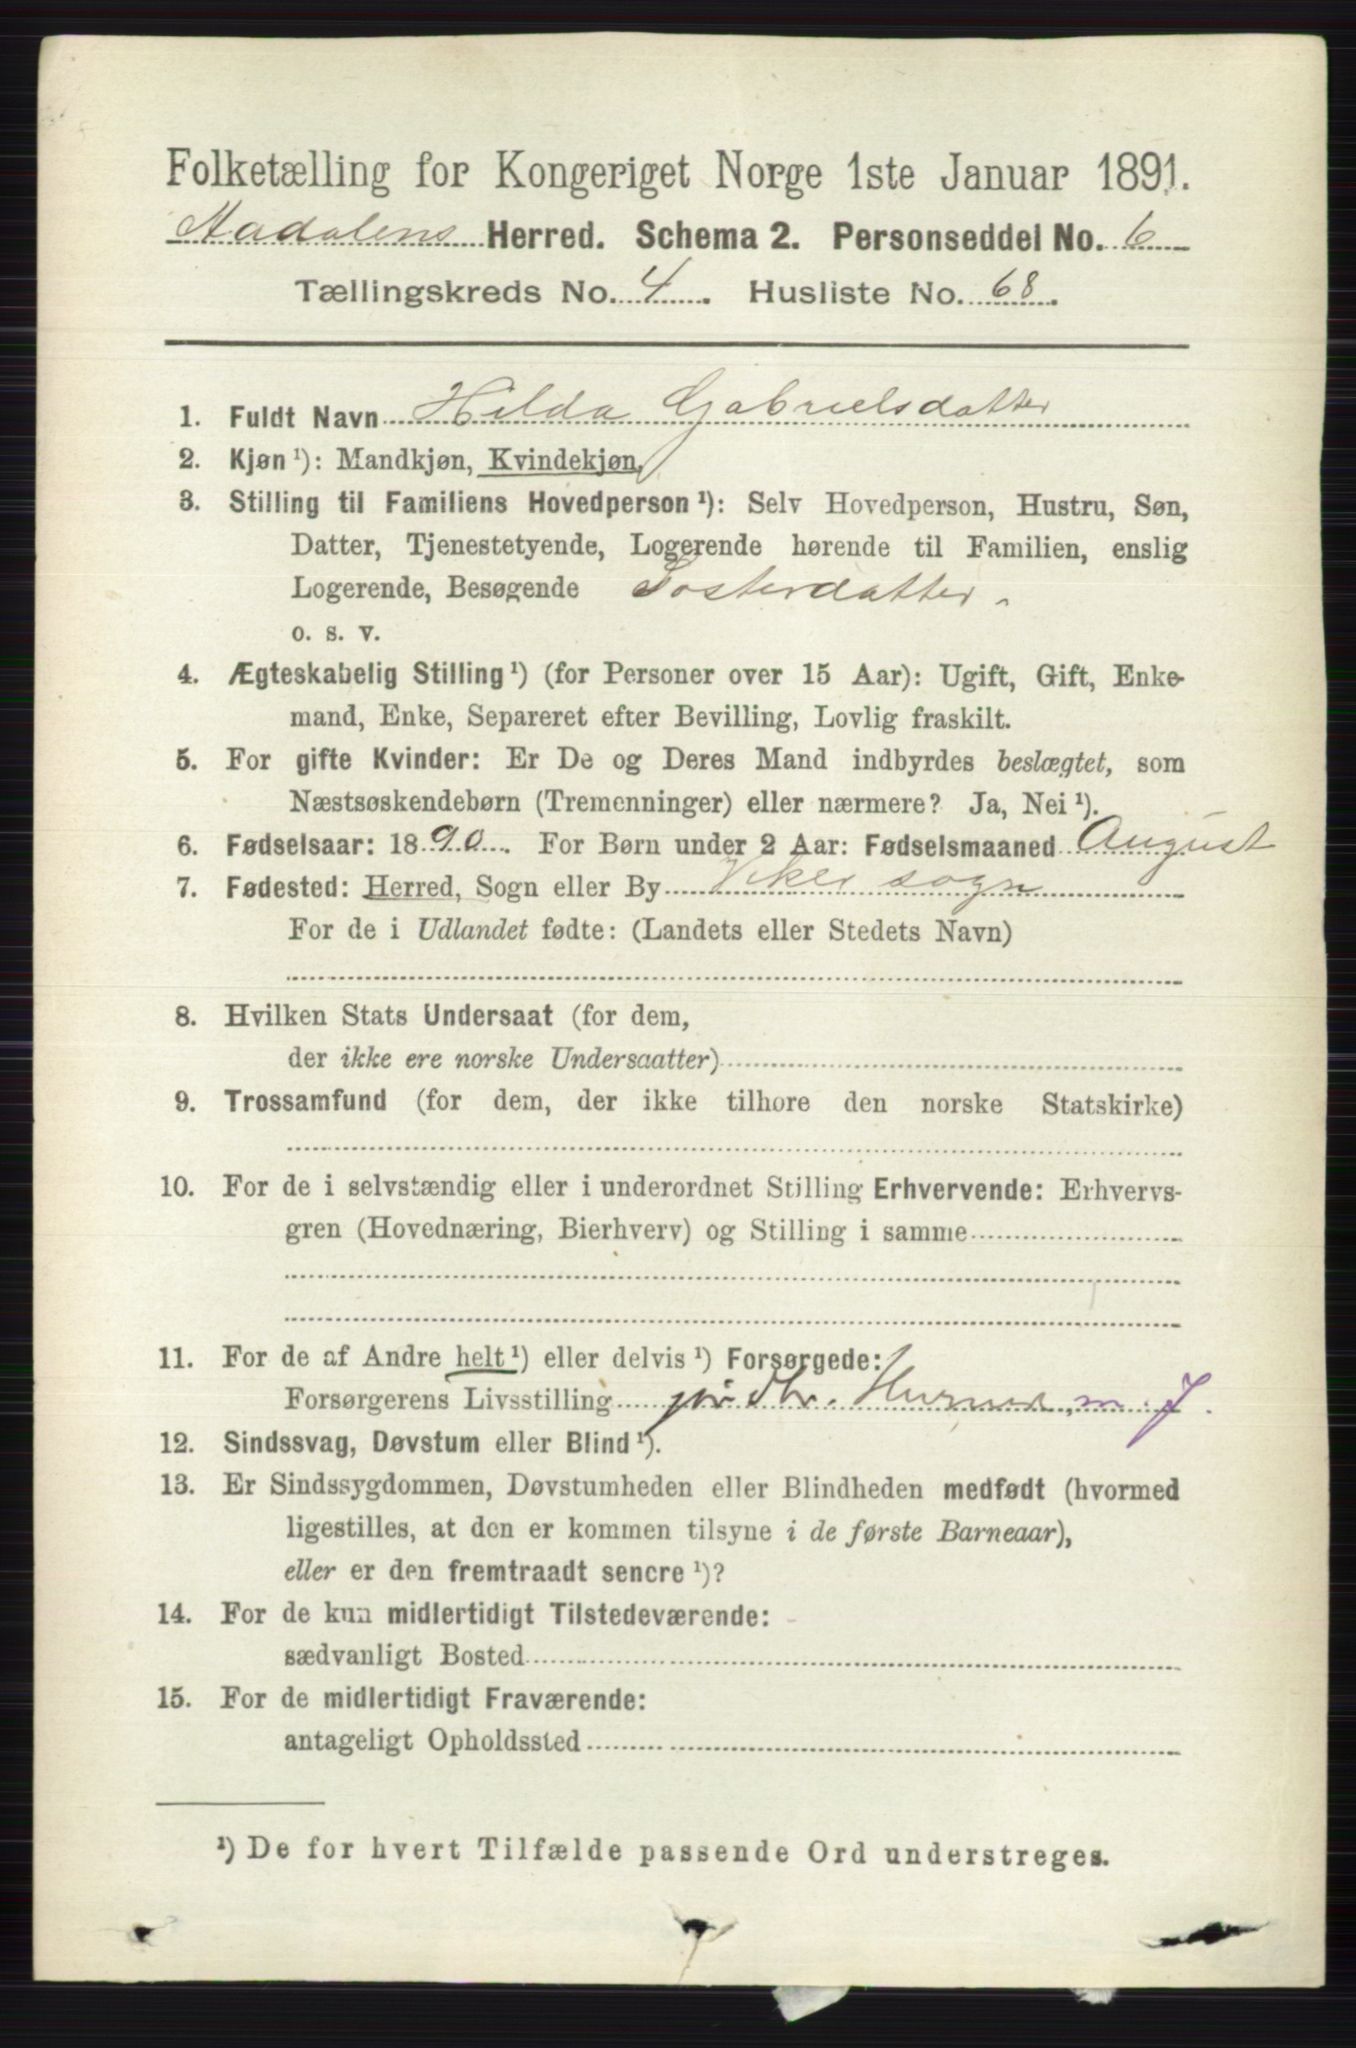 Folketælling for Kongeriget Norge 1ste Januar 1891.
Aadalens Herred. Schema 2. Personseddel No. 6
Tællingskreds No. 4. Husliste No. 68.
1. Fuldt Navn Hilda Gabrielsdatter
2. Kjøn ¹): Mandkjøn, Kvindekjøn,
3. Stilling til Familiens Hovedperson ¹): Selv Hovedperson, Hustru, Søn,
Datter, Tjenestetyende, Logerende hørende til Familien, enslig
Logerende, Besøgende Sosterdatter.
o. s. v.
4. Ægteskabelig Stilling ¹) (for Personer over 15 Aar): Ugift, Gift, Enke-
mand, Enke, Separeret efter Bevilling, Lovlig fraskilt.
5. For gifte Kvinder: Er De og Deres Mand indbyrdes beslægtet, som
Næstsøskendebørn (Tremenninger) eller nærmere? Ja, Nei ¹).
6. Fødselsaar: 1890. For Børn under 2 Aar: Fødselsmaaned August
7. Fødested: Herred, Sogn eller By Viker sogn
For de i Udlandet fødte: (Landets eller Stedets Navn)
8. Hvilken Stats Undersaat (for dem,
der ikke ere norske Undersaatter)
9. Trossamfund (for dem, der ikke tilhøre den norske Statskirke)
10. For de i selvstændig eller i underordnet Stilling Erhvervende: Erhvervs-
gren (Hovednæring, Bierhverv) og Stilling i samme
11. For de af Andre helt ¹) eller delvis ¹) Forsørgede:
Forsørgerens Livsstilling m. J.
12. Sindssvag, Døvstum eller Blind ¹).
13. Er Sindssygdommen, Døvstumheden eller Blindheden medfødt (hvormed
ligestilles, at den er kommen tilsyne i de første Barneaar),
eller er den fremtraadt senere ¹)?
14. For de kun midlertidigt Tilstedeværende:
sædvanligt Bosted
15. For de midlertidigt Fraværende:
antageligt Opholdssted
¹) De for hvert Tilfælde passende Ord understreges.